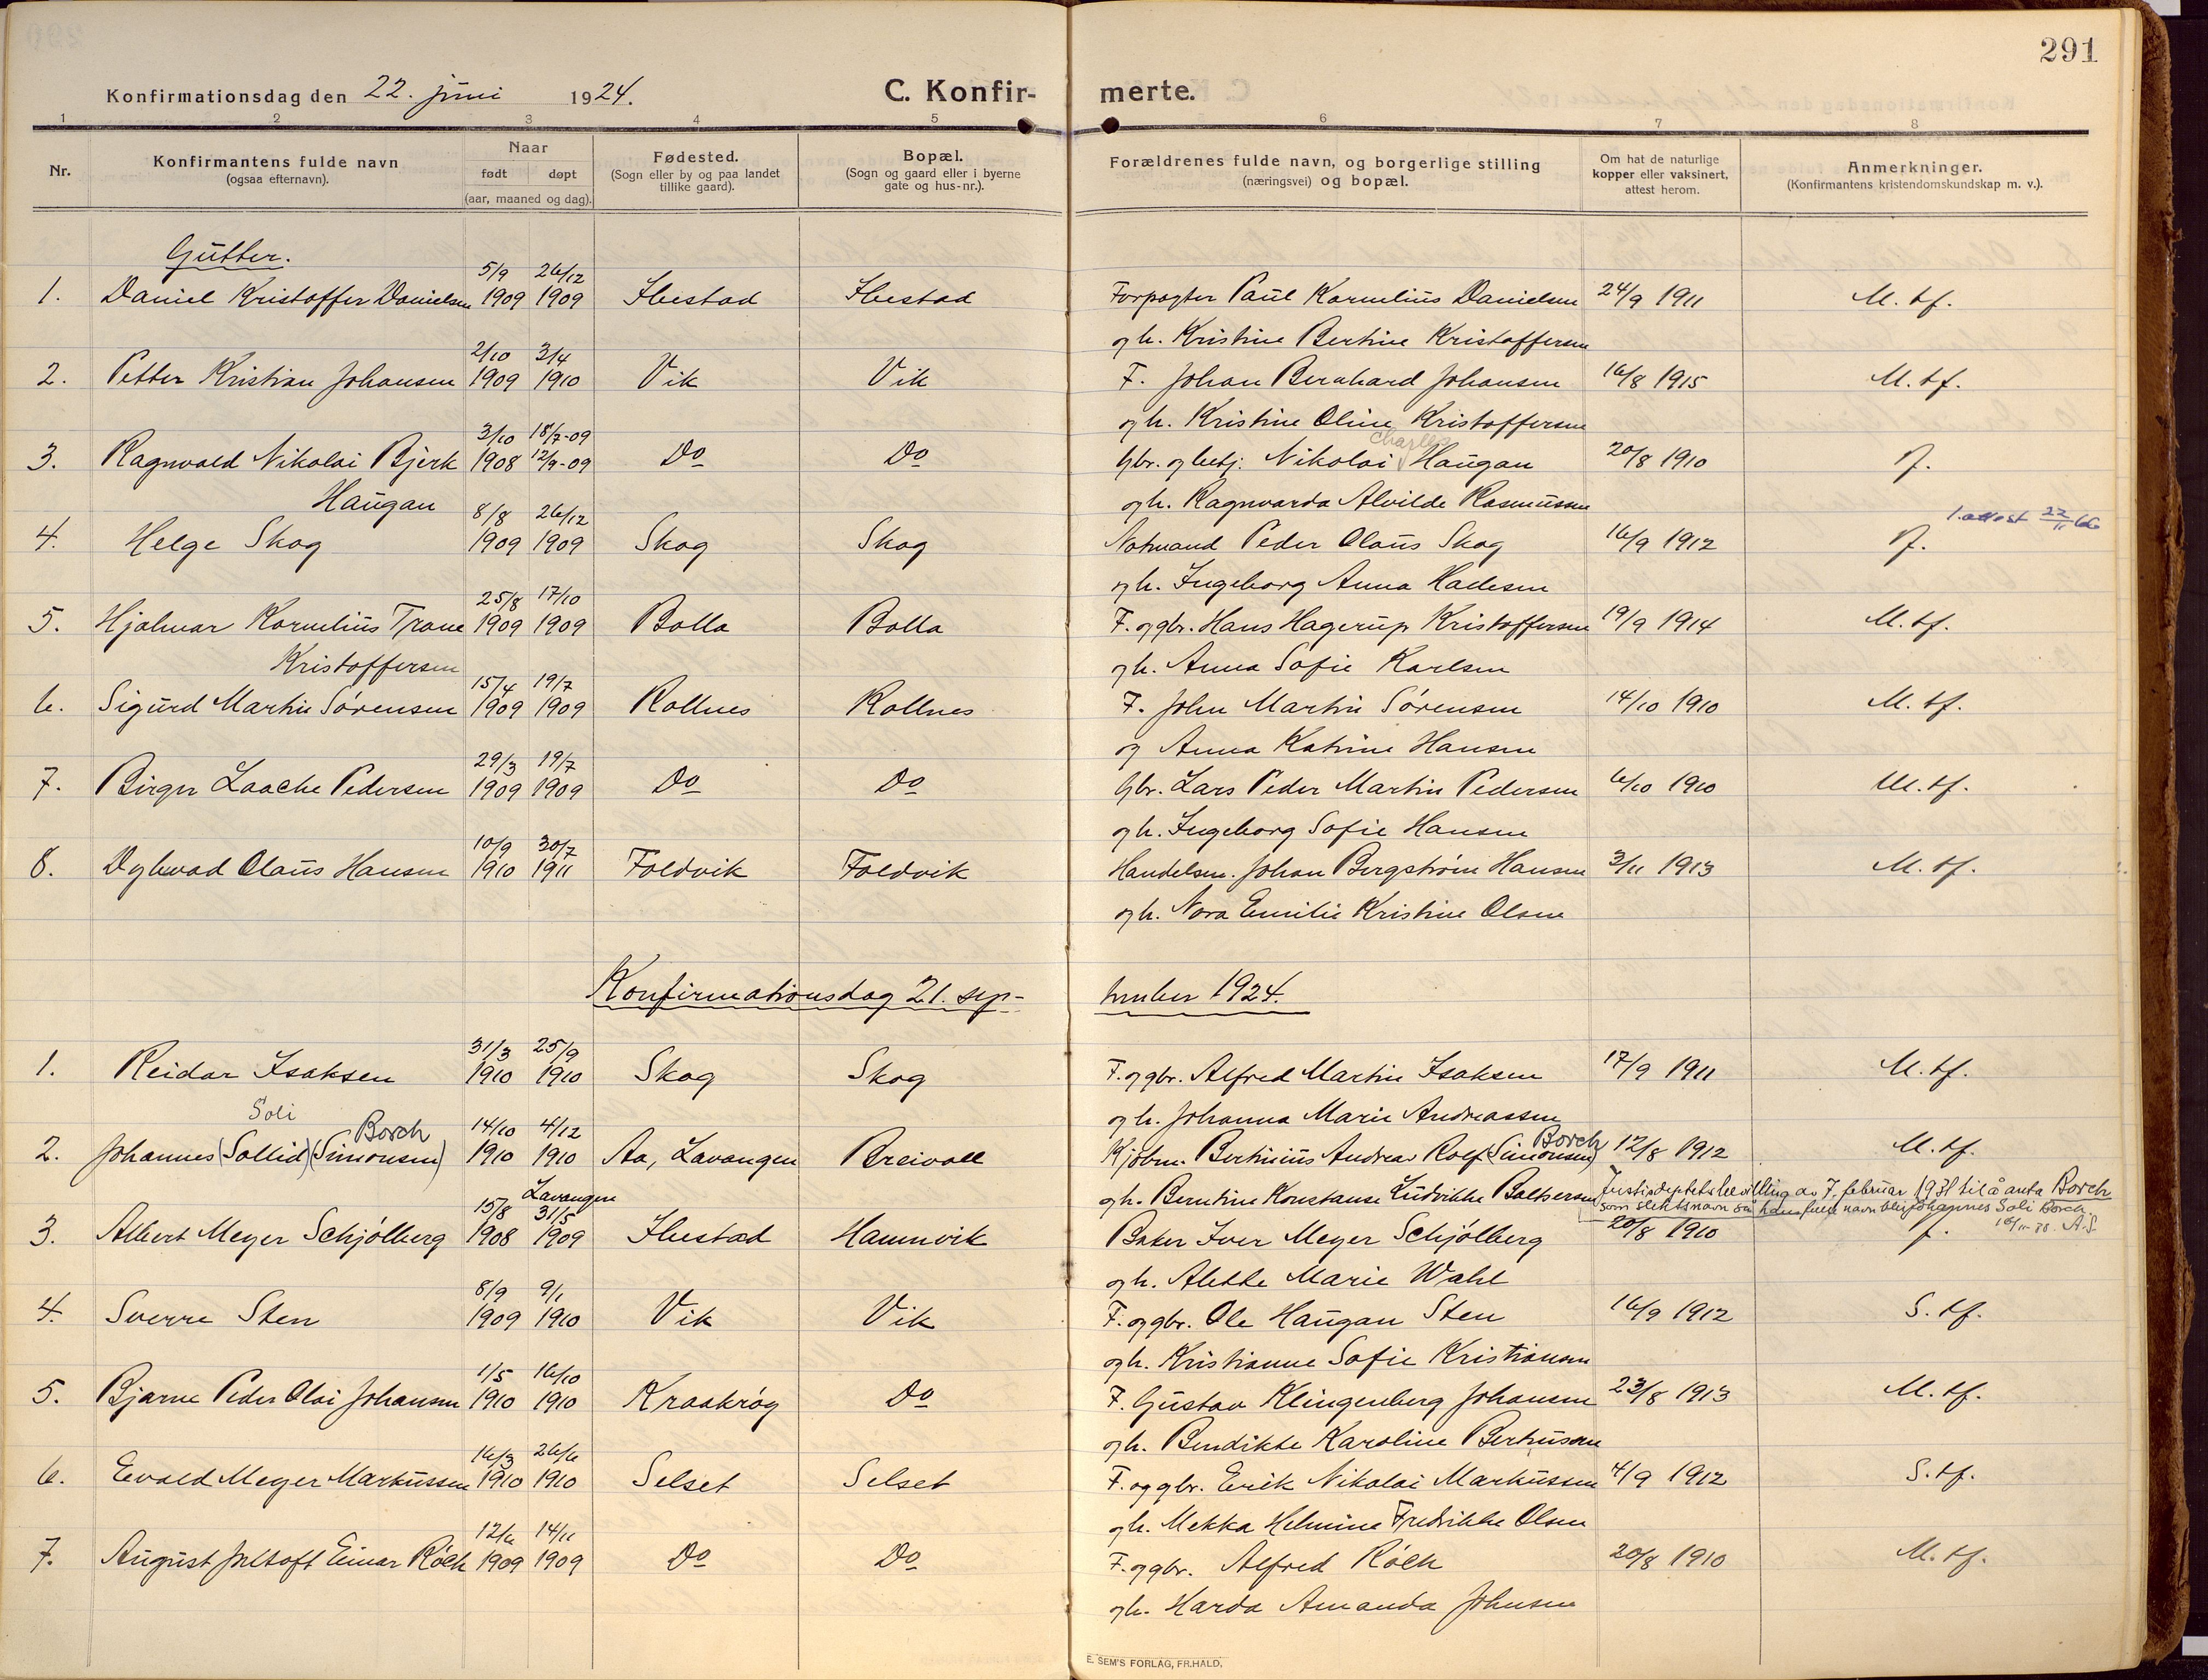 291
Konfirmationsdag den 22. juni 1924. C. Konfir- merte.
1 2 3 4 5 6 7 8
Nr. Konfirmantens fulde navn (ogsaa efternavn). Naar født døpt (aar, maaned og dag). Fødested. (Sogn eller by og paa landet tillike gaard). Bopæl. (Sogn og gaard eller i byerne gate og hus-nr.). Forældrenes fulde navn, og borgerlige stilling (næringsvei) og bopæl. Om hat de naturlige kopper eller vaksinert, attest herom. Anmerkninger. (Konfirmantens kristendomskundskap m. v.).
Gutter.
5/9 26/12
1. Daniel Kristoffer Danielsen 1909 1909 Ibestad Ibestad Forpagter Paul Kornelius Danielsen 24/9 1911 M. tf.
og h. Kristine Bertine Kristoffersen
2/10 3/4
2. Petter Kristian Johansen 1909 1910 Vik Vik F. Johan Bernhard Johansen 16/8 1915 M. tf.
og h. Kristine Oline Kristoffersen
3/10 18/7-09 Charles
3. Ragnvald Nikolai Bjerk 1908 12/9-09 Do Do Gbr. og betj. Nikolai Haugan 20/8 1910
Haugan og h. Ragnvarda Alvilde Rasmussen
8/8 26/12 1.attest 22/11 66
4. Helge Skog 1909 1909 Skog Skog Notmand Peder Olaus Skog 16/9 1912
og h. Ingeborg Anna
25/8 17/10
5. Hjalmar Kornelius Trane 1909 1909 Bolla Bolla F. og gbr. Hans Hagerup Kristoffersen 19/9 1914 M. tf.
Kristoffersen og h. Anna Sofie Karlsen
15/4 19/7
6. Sigurd Martin Sörensen 1909 1909 Rollnes Rollnes F. John Martin Sörensen 14/10 1910 M. tf.
og Anna Katrine Hansen
29/3 19/7
7. Birger Laache Pedersen 1909 1909 Do Do Gbr. Lars Peder Martin Pedersen 6/10 1910 M. tf.
og h. Ingeborg Sofie Hansen
10/9 30/7
8. Dybwad Olaus Hansen 1910 1911 Foldvik Foldvik Handelsm. Johan Bergström Hansen 3/11 1913 M. tf.
og h. Nora Emilie Kristine Olsen
Konfirmationsdag 21. sep- tember 1924.
31/3 25/9
1. Reidar Isaksen 1910 1910 Skog Skog F. og gbr. Alfred Martin Isaksen 17/9 1911 M. tf.
og h. Johanna Marie Andreassen
Soli Borch 14/10 4/12 Borch
2. Johannes (Sollid) (Simonsen) 1910 1910 Aa, Lavangen Breivoll Kjöbm. Bertinius Andreas Rolf (Simonsen) 12/8 1912 M. tf.
og h. Berntine Konstanse Ludvikke Baltsersen Justisdeptets bevilling av 7. februar 1931 til å anta Borch
som slektsnavn så hans fulle navn blir Johannes Soli Borch. A.S.
15/8 Lavangen 31/5
3. Albert Meyer Schjölberg 1908 1909 Ibestad Hamnvik Baker Iver Meyer Schjölberg 20/8 1910
og h. Alette Marie Wahl
8/9 9/1
4. Sverre Sten 1909 1910 Vik Vik F. og gbr. Ole Haugan Sten 16/9 1912 S. tf.
og h. Kristianne Sofie Kristiansen
1/5 16/10
5. Bjarne Peder Olai Johansen 1910 1910 Kraakrög Do F. Gustav Klingenberg Johansen 23/8 1913 M. tf.
og h. Bendikte Karoline Bertheusen
16/3 26/6
6. Evald Meyer Markussen 1910 1910 Selset Selset F. og gbr. Erik Nikolai Markussen 4/9 1912 S. tf.
og h. Mekka Helmine Fredrikke Olsen
12/6 14/11
7. August Jultoft Einar Röck 1909 1909 Do Do F. og gbr. Alfred Röck 20/8 1910 M. tf.
og h. Harda Amanda Johnsen
E. SEM'S FORLAG, FR.HALD.